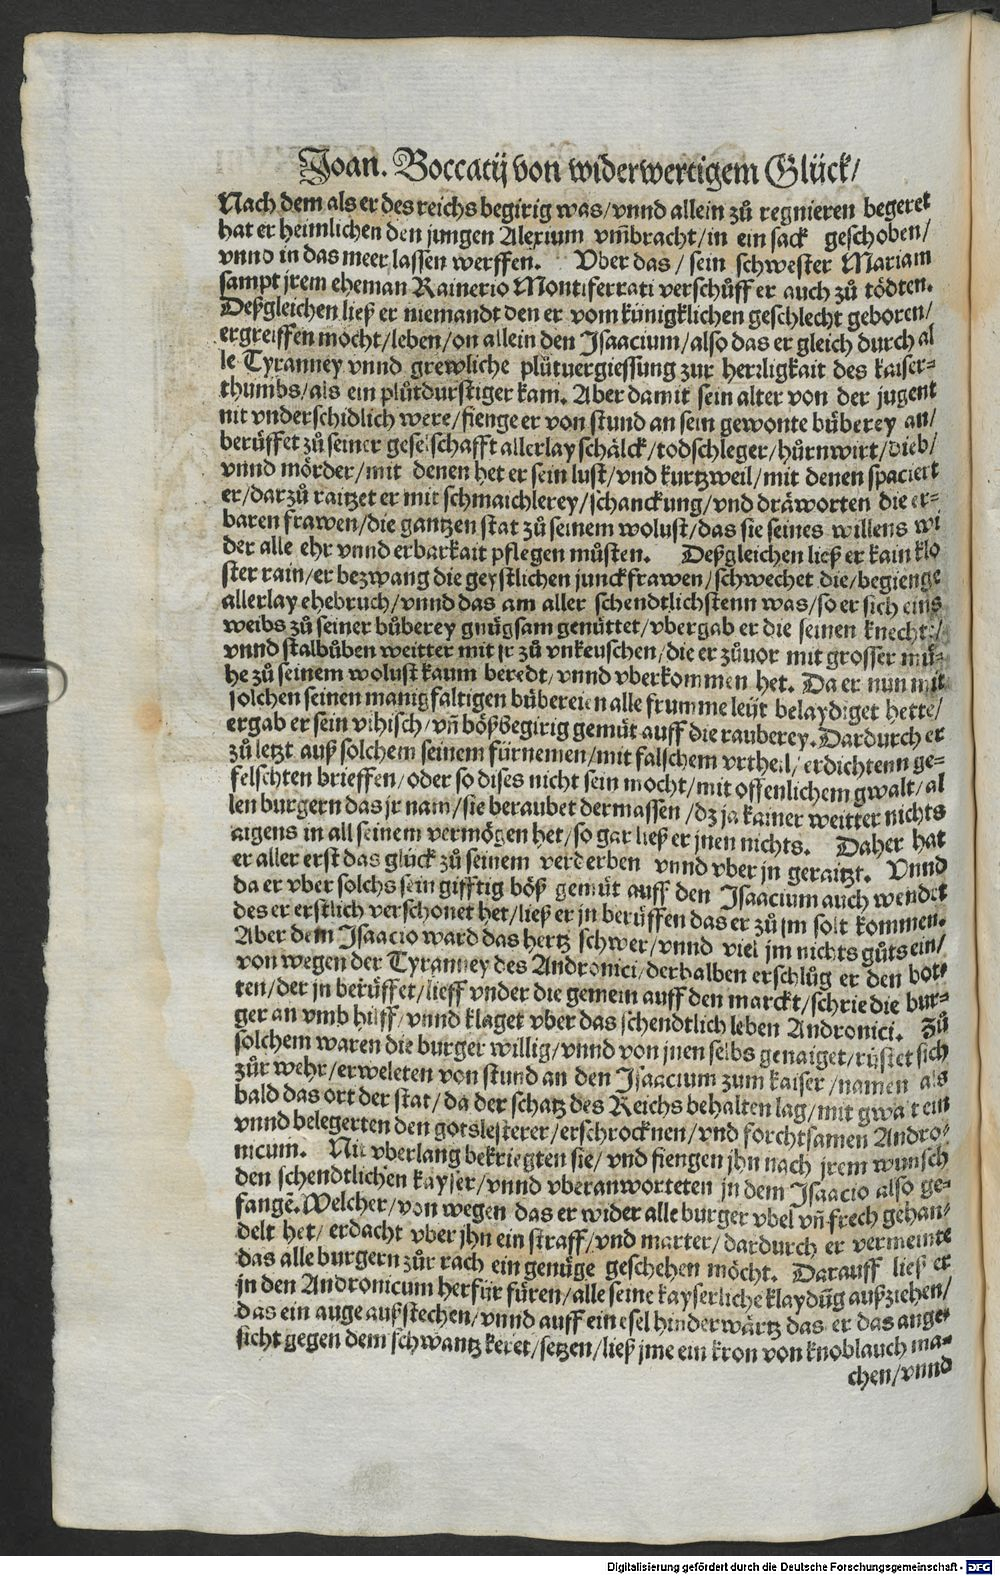 Joan. Boccatij von widerwertigem Glück/
Nach dem als er des reichs begirig was/vnnd allein zů regnieren begeret
hat er heimlichen den jungen Alexium vm̃bracht/in ein sack geschoben/
vnnd in das meer lassen werffen. Vber das/sein schwester Mariam
sampt jrem eheman Rainerio Montiferrati verschůff er auch zů tödten.
Deßgleichen ließ er niemandt den er vom künigklichen geschlecht geboren/
ergreiffen mocht/leben/on allein den Isaacium/also das er gleich durch al
le Tyranney vnnd grewliche plůtuergiessung zur herzligkait des kaiser-
thumbs/als ein plůtdurstiger kam. Aber damit sein alter von der jugent
nit vnderschidlich were/fienge er von stund an sein gewonte bůberey an/
berůffet zů seiner geselschafft allerlay schälck/todschleger/hůrnwirt/dieb/
vnnd mörder/mit denen het er sein lust/vnd kurtzweil/mit denen spaciert
er/darzů raitzet er mit schmaichlerey/schanckung/vnd dräworten die er-
baren frawen/die gantzen stat zů seinem wolust/das sie seines willens wi
der alle ehr vnnd erbarkait pflegen můsten. Deßgleichen ließ er kain klo
ster rain/er bezwang die geystlichen junckfrawen/schwechet die/begienge
allerlay ehebruch/vnnd das am aller schendtlichstenn was/so er sich eins
weibs zů seiner bůberey gnůgsam genüttet/vbergab er die seinen knecht/
vnnd stalbůben weitter mit jr zů vnkeuschen/die er zůuor mit grosser mü-
he zů seinem wolust kaum beredt/vnnd vberkommen het. Da er nun mit
solchen seinen manigfaltigen bübereien alle frumme leüt belaydiget hette/
ergab er sein vihisch/vñ bößbegirig gemüt auff die rauberey. Dardurch er
zů letzt auß solchem seinem fürnemen/mit falschem vrtheil/erdichtenn ge-
felschten brieffen/oder so dises nicht sein mocht/mit offenlichem gwalt/al
len burgern das jr nam/sie beraubet dermassen/dz ja kainer weitter nichts
aigens in all seinem vermögen het/so gar ließ er jnen nichts. Daher hat
er aller erst das glück zů seinem verderben vnnd vber jn geraitzt. Vnnd
da er vber solchs sein gifftig böß gemüt auff den Isaacium auch wendet
des er erstlich verschonet het/ließ er jn berüffen das er zů jm solt kommen.
Aber dem Isaacio ward das hertz schwer/vnnd viel jm nichts gůts ein/
von wegen der Tyranney des Andronici/derhalben erschlůg er den bot-
ten/der jn berüffet/lieff vnder die gemein auff den marckt/schrie die bur-
ger an vmb hilff/vnnd klaget vber das schendtlich leben Andronici. Zů
solchem waren die burger willig/vnnd von jnen selbs genaiget/rüstet sich
zůr wehr/erweleten von stund an den Isaacium zum kaiser/namen als
bald das ort der stat/da der schatz des Reichs behalten lag/mit gwalt ein
vnnd belegerten den gotslesterer/erschrocknen/vnd forchtsamen Andro-
nicum. Nit vberlang bekriegten sie/vnd fiengen jhn nach jrem wunsch
den schendtlichen kayser/vnnd vberanworteten jn dem Isaacio also ge-
fangẽ. Welcher/von wegen das er wider alle burger vbel vñ frech gehan-
delt het/erdacht vber jhn ein straff/vnd marter/dardurch er vermeinte
das alle burgern zůr rach ein genüge geschehen möcht. Darauff ließ er
jn den Andronicum herfür füren/alle seine kayserliche klaydũg außziehen/
das ein auge außstechen/vnnd auff ein esel hinderwärtz das er das ange-
sicht gegen dem schwantz keret/setzen/ließ jme ein kron von knoblauch ma-
chen/vnnd
Digitalisierung gefördert durch die Deutsche Forschungsgemeinschaft - DFG